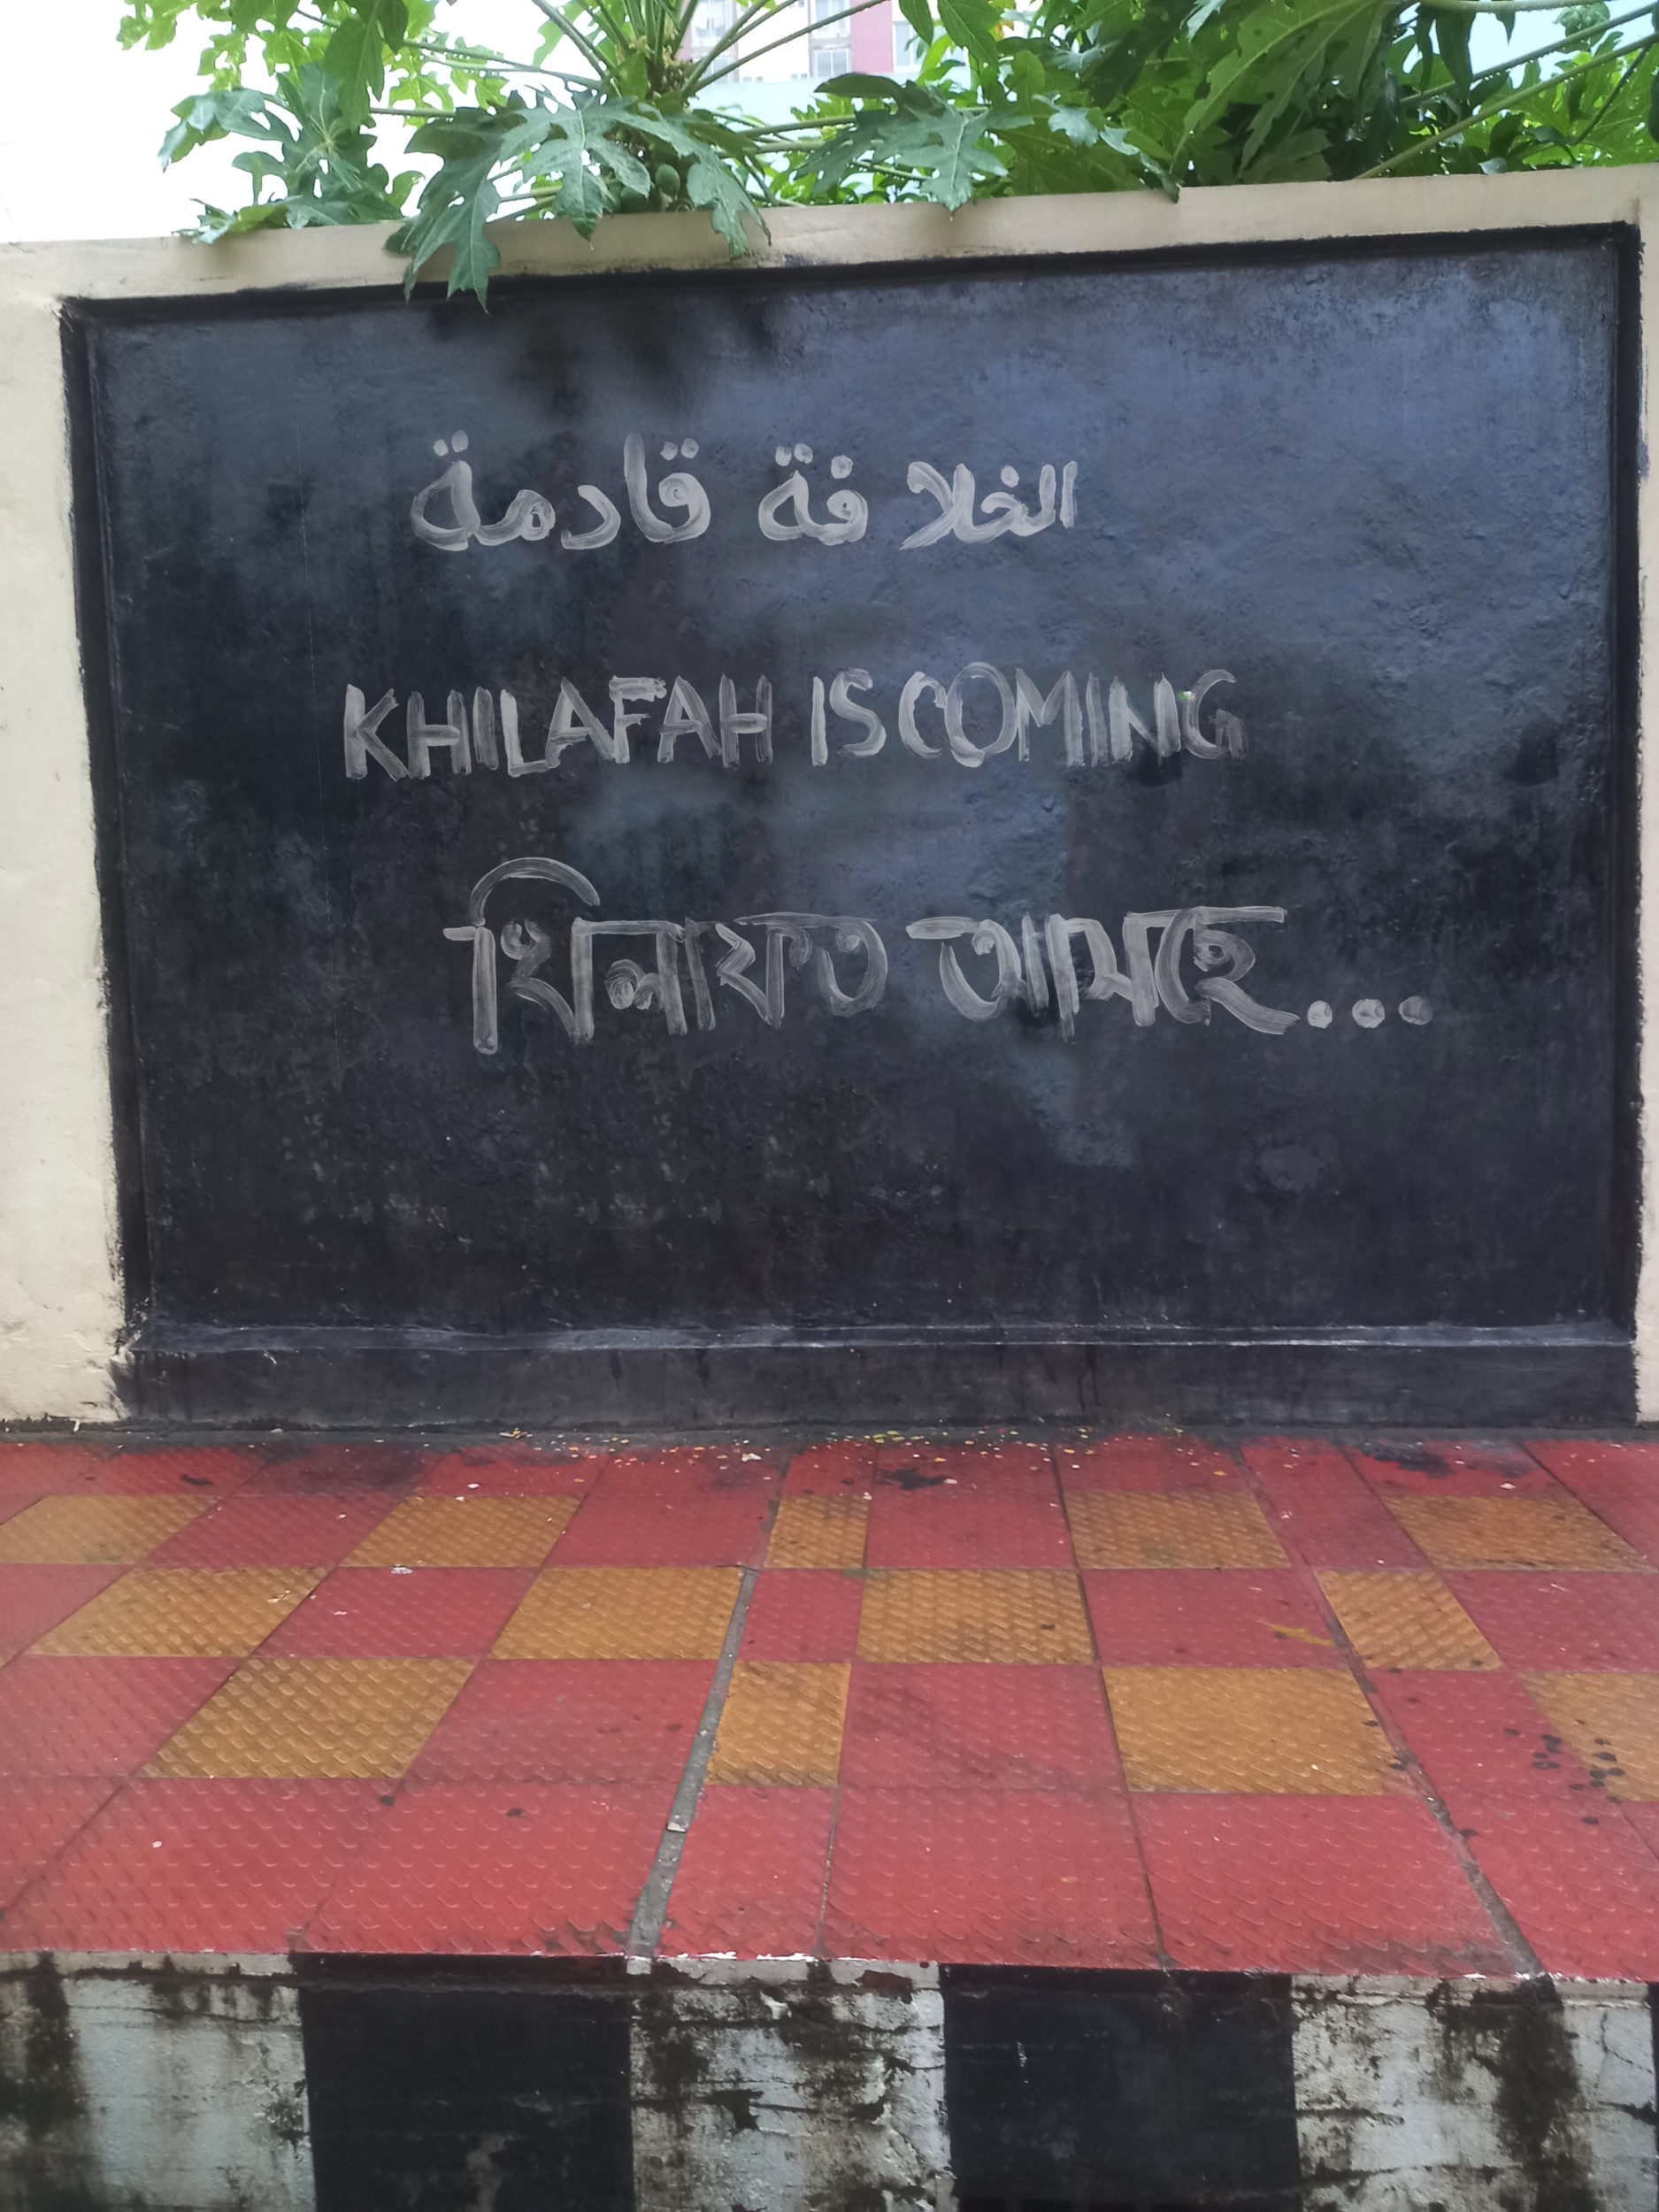 الخلافة قادمة
KHILAFAH IS COMING
খিলাফত আসছে...